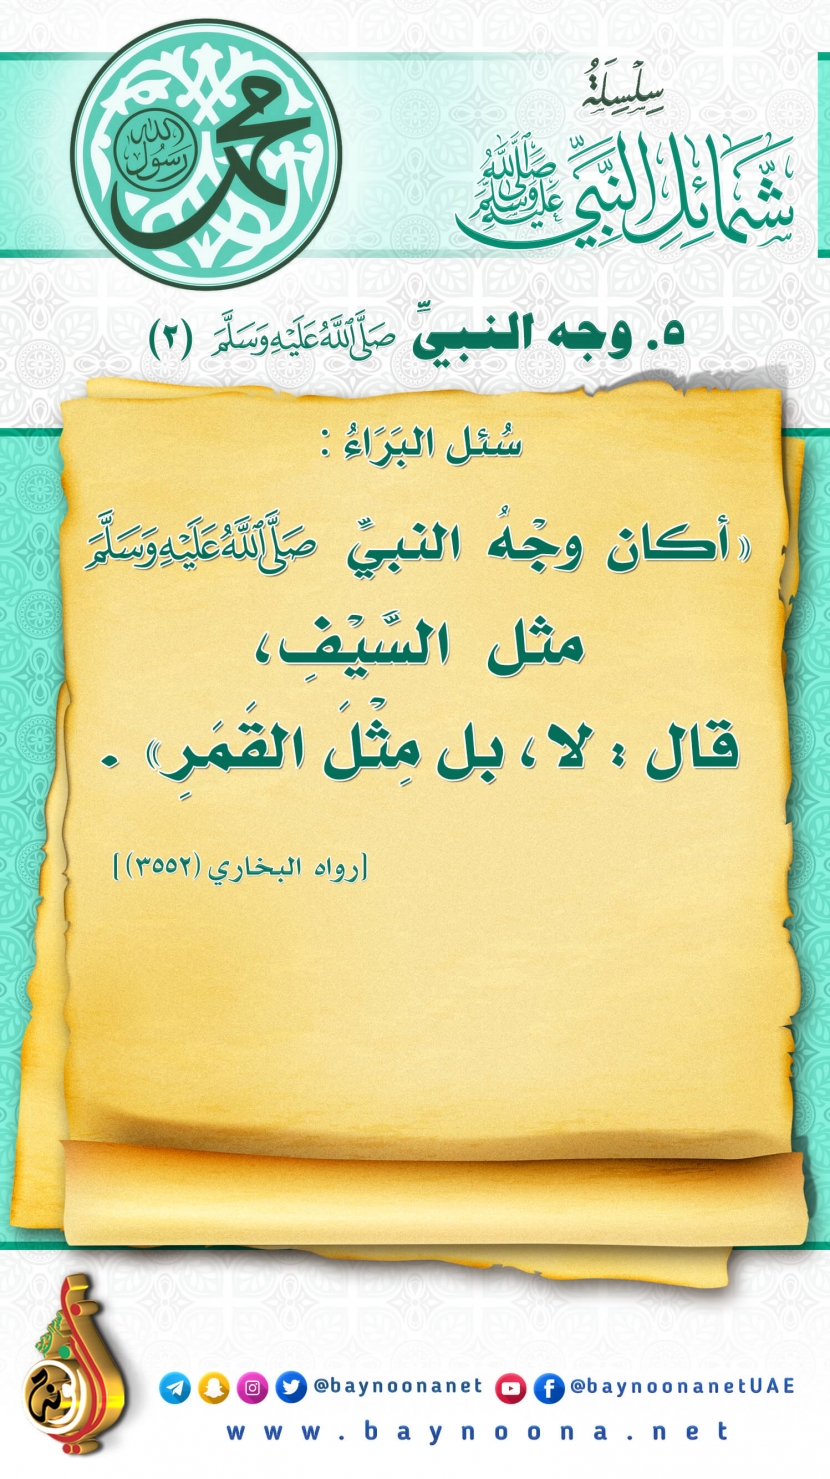 سِلْسِلَةُ
شَمَائِلِ النَّبِيِّ صَلَّى اللَّهُ عَلَيْهِ وَسَلَّمَ
محمد رسول الله
٥. وجه النبيِّ صَلَّى اللَّهُ عَلَيْهِ وَسَلَّمَ (٢)
سُئل البَرَاءُ :
«أكان وجْهُ النبيِّ صَلَّى اللَّهُ عَلَيْهِ وَسَلَّمَ
مثل السَّيْفِ،
قال : لا، بل مِثْلَ القَمَرِ» .
[رواه البخاري (٣٥٥٢)]
@baynoonanet @baynoonanetUAE
www.baynoona.net